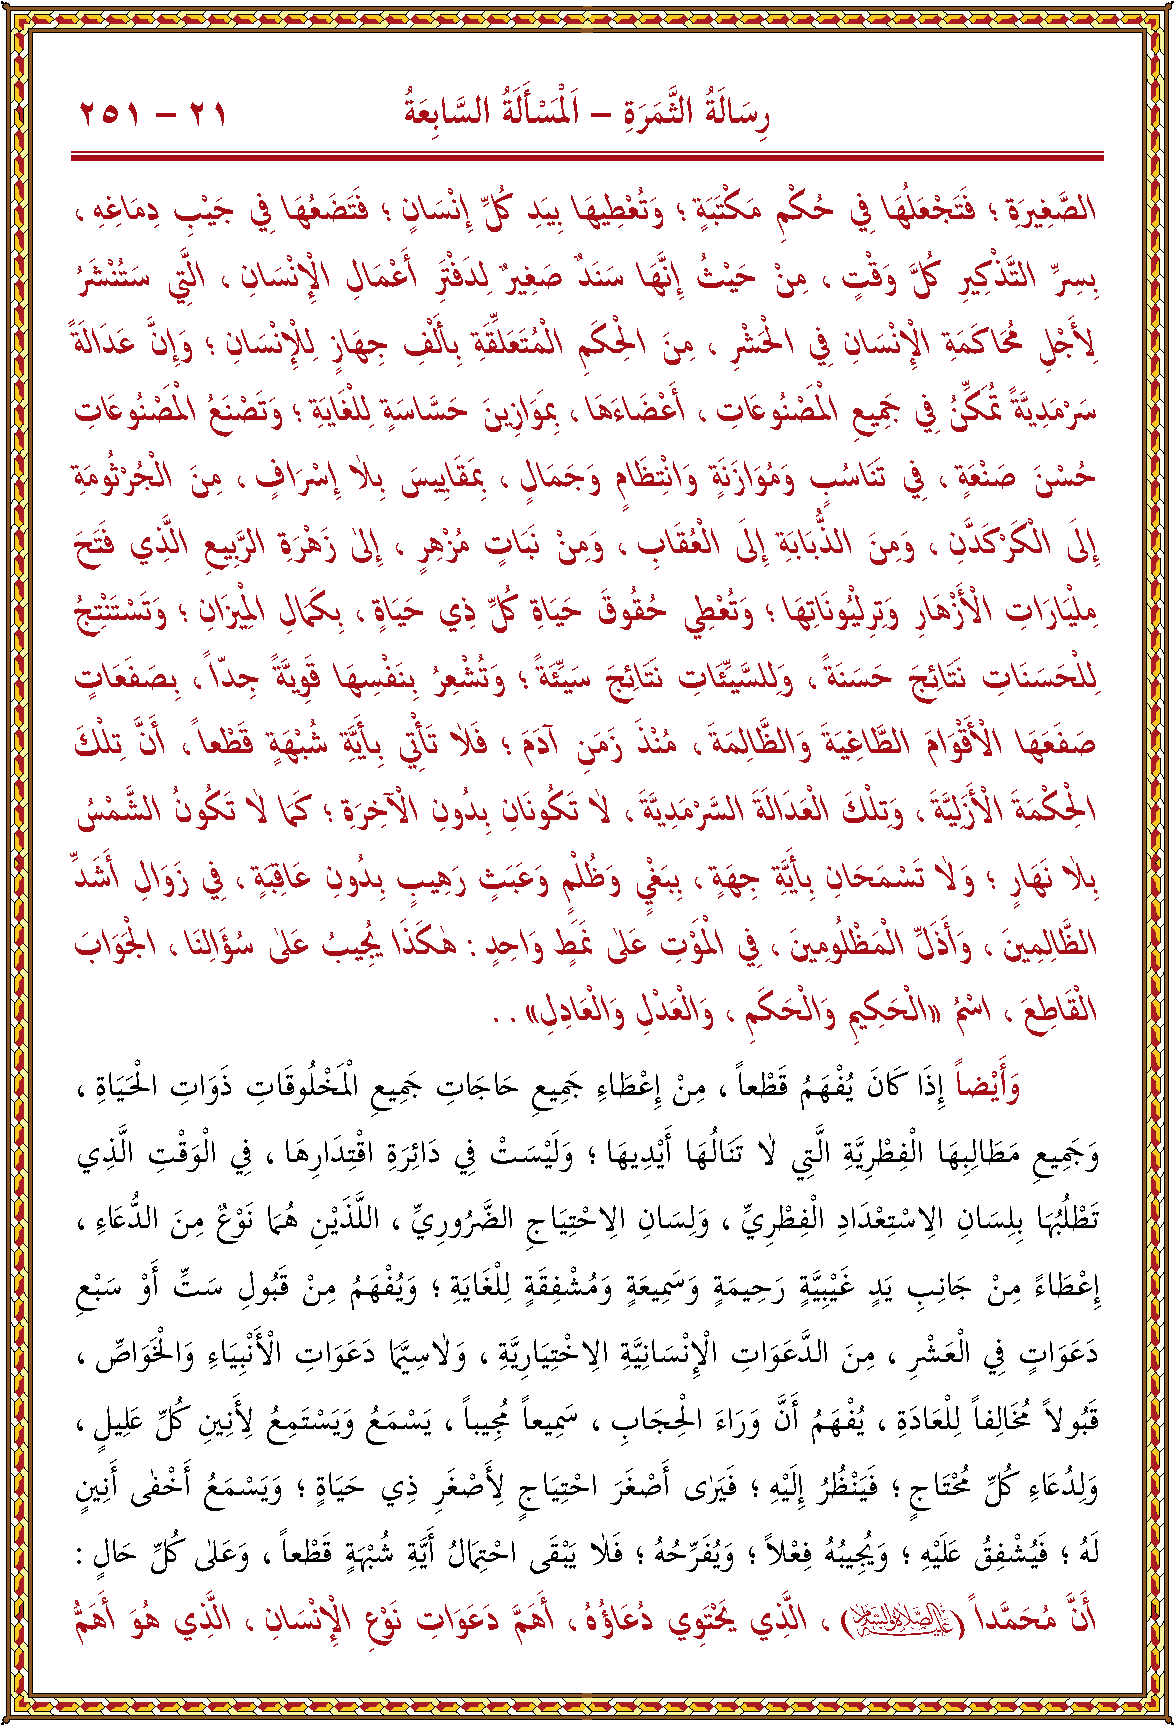 رِسَالَةُ الثَّمَرَةِ – اَلْمَسْأَلَةُ السَّابِعَةُ ٢١ – ٢٥١
الصَّغِيرَةِ ؛ فَتَجْعَلُهَا فِي حُكْمِ مَكْتَبَةٍ ؛ وَتُعْطِيهَا بِيَدِ كُلِّ إِنْسَانٍ ؛ فَتَضَعُهَا فِي جَيْبِ دِمَاغِهِ ،
بِسِرِّ التَّذْكِيرِ كُلَّ وَقْتٍ ، مِنْ حَيْثُ إِنَّهَا سَنَدٌ صَغِيرٌ لِدَفْتَرِ أَعْمَالِ الْإِنْسَانِ ، الَّتِي سَتُنْشَرُ
لِأَجْلِ مُحَاكَمَةِ الْإِنْسَانِ فِي الْحَشْرِ ، مِنَ الْحِكَمِ الْمُتَعَلِّقَةِ بِأَلْفِ جِهَازٍ لِلْإِنْسَانِ ؛ وَإِنَّ عَدَالَةً
سَرْمَدِيَّةً تُمَكِّنُ فِي جَمِيعِ الْمَصْنُوعَاتِ ، أَعْضَاءَهَا ، بِمَوَازِينَ حَسَّاسَةٍ لِلْغَايَةِ ؛ وَتَصْنَعُ الْمَصْنُوعَاتِ
حُسْنَ صَنْعَةٍ ، فِي تَنَاسُبٍ وَمُوَازَنَةٍ وَانْتِظَامٍ وَجَمَالٍ ، بِمَقَايِيسَ بِلَا إِسْرَافٍ ، مِنَ الْجُرْثُومَةِ
إِلَى الْكَرْكَدَّنِ ، وَمِنَ الذُّبَابَةِ إِلَى الْعُقَابِ ، وَمِنْ نَبَاتٍ مُزْهِرٍ ، إِلَى زَهْرَةِ الرَّبِيعِ الَّذِي فَتَحَ
مِلْيَارَاتِ الْأَزْهَارِ وَتِرِلْيُونَاتِهَا ؛ وَتُعْطِي حُقُوقَ حَيَاةِ كُلِّ ذِي حَيَاةٍ ، بِكَمَالِ الْمِيزَانِ ؛ وَتَسْتَنْتِجُ
لِلْحَسَنَاتِ نَتَائِجَ حَسَنَةً ، وَلِلسَّيِّئَاتِ نَتَائِجَ سَيِّئَةً ؛ وَتُشْعِرُ بِنَفْسِهَا قَوِيَّةً جِدّاً ، بِصَفَعَاتٍ
صَفَعَهَا الْأَقْوَامَ الطَّاغِيَةَ وَالظَّالِمَةَ ، مُنْذَ زَمَنِ آدَمَ ؛ فَلَا تَأْتِي بِأَيَّةِ شُبْهَةٍ قَطْعاً ، أَنَّ تِلْكَ
الْحِكْمَةَ الْأَزَلِيَّةَ ، وَتِلْكَ الْعَدَالَةَ السَّرْمَدِيَّةَ ، لَا تَكُونَانِ بِدُونِ الْآخِرَةِ ؛ كَمَا لَا تَكُونُ الشَّمْسُ
بِلَا نَهَارٍ ؛ وَلَا تَسْمَحَانِ بِأَيَّةِ جِهَةٍ ، بِبَغْيٍ وَظُلْمٍ وَعَبَثٍ رَهِيبٍ بِدُونِ عَاقِبَةٍ ، فِي زَوَالِ أَشَدِّ
الظَّالِمِينَ ، وَأَذَلِّ الْمَظْلُومِينَ ، فِي الْمَوْتِ عَلَى نَمَطٍ وَاحِدٍ : هٰكَذَا يُجِيبُ عَلَى سُؤَالِنَا ، الْجَوَابَ
الْقَاطِعَ ، اسْمُ «الْحَكِيمِ وَالْحَكَمِ ، وَالْعَدْلِ وَالْعَادِلِ» . .
وَأَيْضاً إِذَا كَانَ يُفْهَمُ قَطْعاً ، مِنْ إِعْطَاءِ جَمِيعِ حَاجَاتِ جَمِيعِ الْمَخْلُوقَاتِ ذَوَاتِ الْحَيَاةِ ،
وَجَمِيعِ مَطَالِبِهَا الْفِطْرِيَّةِ الَّتِي لَا تَنَالُهَا أَيْدِيهَا ؛ وَلَيْسَتْ فِي دَائِرَةِ اقْتِدَارِهَا ، فِي الْوَقْتِ الَّذِي
تَطْلُبُهَا بِلِسَانِ الِاسْتِعْدَادِ الْفِطْرِيِّ ، وَلِسَانِ الِاحْتِيَاجِ الضَّرُورِيِّ ، اللَّذَيْنِ هُمَا نَوْعٌ مِنَ الدُّعَاءِ ،
إِعْطَاءً مِنْ جَانِبِ يَدٍ غَيْبِيَّةٍ رَحِيمَةٍ وَسَمِيعَةٍ وَمُشْفِقَةٍ لِلْغَايَةِ ؛ وَيُفْهَمُ مِنْ قَبُولِ سَتِّ أَوْ سَبْعِ
دَعَوَاتٍ فِي الْعَشْرِ ، مِنَ الدَّعَوَاتِ الْإِنْسَانِيَّةِ الِاخْتِيَارِيَّةِ ، وَلَاسِيَّمَا دَعَوَاتِ الْأَنْبِيَاءِ وَالْخَوَاصِّ ،
قَبُولاً مُخَالِفاً لِلْعَادَةِ ، يُفْهَمُ أَنَّ وَرَاءَ الْحِجَابِ ، سَمِيعاً مُجِيباً ، يَسْمَعُ وَيَسْتَمِعُ لِأَنِينِ كُلِّ عَلِيلٍ ،
وَلِدُعَاءِ كُلِّ مُحْتَاجٍ ؛ فَيَنْظُرُ إِلَيْهِ ؛ فَيَرَى أَصْغَرَ احْتِيَاجٍ لِأَصْغَرِ ذِي حَيَاةٍ ؛ وَيَسْمَعُ أَخْفَى أَنِينٍ
لَهُ ؛ فَيُشْفِقُ عَلَيْهِ ؛ وَيُجِيبُهُ فِعْلاً ؛ وَيُفَرِّحُهُ ؛ فَلَا يَبْقَى احْتِمَالُ أَيَّةِ شُبْهَةٍ قَطْعاً ، وَعَلَى كُلِّ حَالٍ :
أَنَّ مُحَمَّداً (عَلَيْهِ الصَّلَاةُ وَالسَّلَامُ) ، الَّذِي يَحْتَوِي دُعَاؤُهُ ، أَهَمَّ دَعَوَاتِ نَوْعِ الْإِنْسَانِ ، الَّذِي هُوَ أَهَمُّ